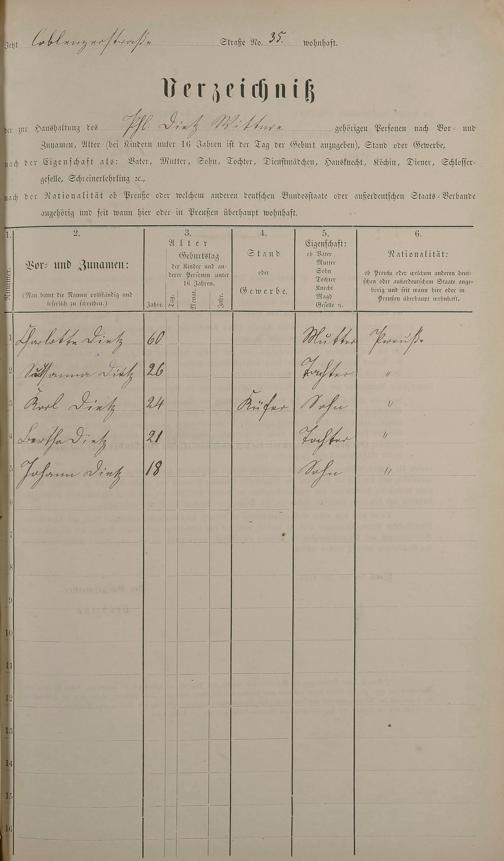 Jetzt Coblenzerstraße Straße No. 35. wohnhaft.
Verzeichniß
der zur Haushaltung des Phl. Dietz Wittwe gehörigen Personen nach Vor- und
Zunamen, Alter (bei Kindern unter 16 Jahren ist der Tag der Geburt anzugeben), Stand oder Gewerbe,
nach der Eigenschaft als: Vater, Mutter, Sohn, Tochter, Dienstmädchen, Hausknecht, Köchin, Diener, Schlosser-
geselle, Schreinerlehrling ec.,
nach der Nationalität ob Preuße oder welchem anderen deutschen Bundesstaate oder außerdeutschen Staats-Verbande
angehörig und seit wann hier oder in Preußen überhaupt wohnhaft.
1. 2. 3. 4. 5. 6.
Nummer.
Vor- und Zunamen:
(Man bittet die Namen vollständig und
leserlich zu schreiben.)
Alter
Geburtstag
der Kinder und an-
derer Personen unter
16 Jahren.
Jahre. Tag. Monat. Jahr.
Stand
oder
Gewerbe.
Eigenschaft:
ob Vater
Mutter
Sohn
Tochter
Knecht
Magd
Geselle u.
Nationalität:
ob Preuße oder welchem anderen deut-
schen oder außerdeutschen Staate ange-
hörig und seit wann hier oder in
Preußen überhaupt wohnhaft.
1 Charlotte Dietz 60 Mutter Preuße
2 Susanna Dietz 26 Tochter "
3 Karl Dietz 24 Küfer Sohn "
4 Bertha Dietz 21 Tochter "
5 Johann Dietz 18 Sohn "
6
7
8
9
10
11
12
13
14
15
16